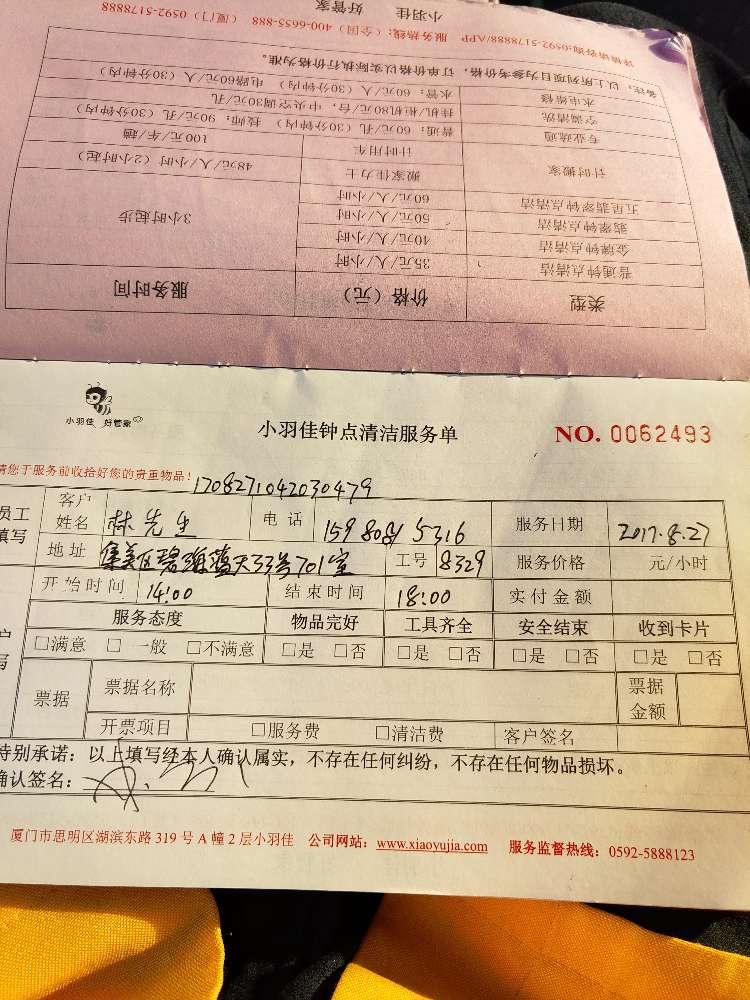 小羽佳 好管家
详情请咨询:0592-5178888/APP 服务热线：(全国) 400-6655-888 (厦门) 0592-5178888
备注：以上所列项目为参考价格，订单价格以实际执行价格为准。
水电维修 水管：60元/人（30分钟内） 电路60元/人（30分钟内）
空调清洗 挂机/柜机80元/台，中央空调30元/孔
专业疏通 普通：60元/孔（30分钟内） 技师：90元/孔（30分钟内）
计时搬家 计时用车 100元/车/趟
搬家佳力士 48元/人/小时（2小时起）
五星翡翠钟点清洁 60元/人/小时 3小时起步
翡翠钟点清洁 50元/人/小时
金牌钟点清洁 40元/人/小时
普通钟点清洁 35元/人/小时
类型 价格（元） 服务时间
小羽佳 好管家
小羽佳钟点清洁服务单 NO. 0062493
请您于服务前收拾好您的贵重物品！ 1708271042030479
员工填写 客户姓名 林先生 电话 服务日期 2017.8.27
地址 集美区碧海蓝天33号701室 工号 8329 服务价格 元/小时
开始时间 14:00 结束时间 18:00 实付金额
服务态度 物品完好 工具齐全 安全结束 收到卡片
□满意 □一般 □不满意 □是 □否 □是 □否 □是 □否 □是 □否
票据 票据名称 票据金额
开票项目 □服务费 □清洁费 客户签名
特别承诺：以上填写经本人确认属实，不存在任何纠纷，不存在任何物品损坏。
确认签名：
厦门市思明区湖滨东路 319 号 A 幢 2 层小羽佳 公司网站：www.xiaoyujia.com 服务监督热线：0592-5888123